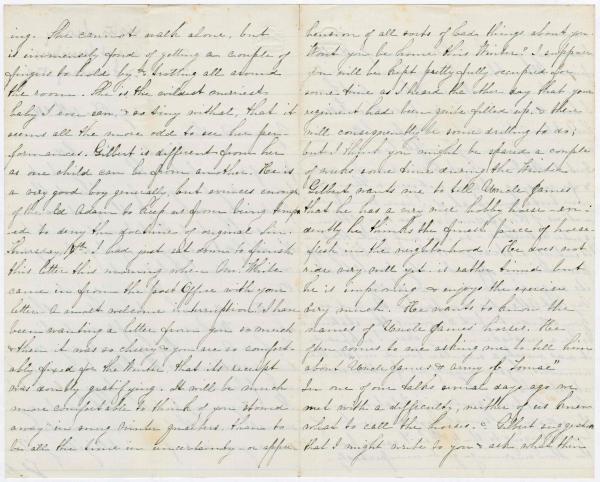 ing. She cannot walk alone, but
is immensely fond of getting a couple of
fingers to hold by & trotting all around
the room. She is the wildest merriest
baby I ever saw, & so tiny withal, that it
seems all the more odd to see her per-
formances. Gilbert is different from her
as one child can be from another. He is
a very good boy generally, but evinces enough
of the old Adam to keep us from being temp
ed to deny the doctrine of original sin.
Thursday 17th. I had just sat down to finish
this letter this morning when Mr. White
came in from the post Office with your
letter. A most welcome interruption. I have
been wanting a letter from you so much
& then it was so cheery & you are so comfort-
ably fixed for the Winter that its receipt
was doubly gratifying. It will be much
more comfortable to think of you stowed
away in snug winter quarters, than to
be all the time in uncertainty or appre
hension of all sorts of bad things about you.
Wont you be home this Winter? I suppose
you will be kept pretty fully occupied for
some time as I heard the other day that your
regiment had been quite filled up, & there
will consequently be some drilling to do;
but I think you might be spared a couple
of weeks some time during the Winter.
Gilbert wants me to tell Uncle James
that he has a very nice hobby horse - evi-
dently he thinks the finest piece of horse-
flesh in the neighborhood. He does not
ride very well yet is rather timid but
he is improving & enjoys the exercise
very much. He wants to know the
names of Uncle James' horses. He
often comes to me asking me to tell him
about "Uncle James & army Potomac"
In one of our talks several days ago we
met with a difficulty, neither of us knew
what to call the horses. Gilbert suggested
that I might write to you & ask what their